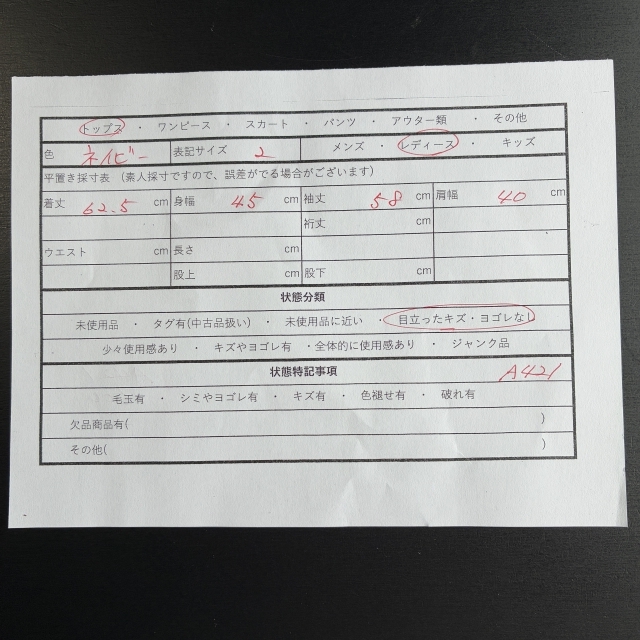 トップス ・ ワンピース ・ スカート ・ パンツ ・ アウター類 ・ その他
色 ネイビー 表記サイズ 2 メンズ ・ レディース ・ キッズ
平置き採寸表 (素人採寸ですので、誤差がでる場合がございます)
着丈 62.5 cm 身幅 45 cm 袖丈 58 cm 肩幅 40 cm
裄丈 cm
ウエスト cm 長さ cm
股上 cm 股下 cm
状態分類
未使用品 ・ タグ有(中古品扱い) ・ 未使用品に近い ・ 目立ったキズ・ヨゴレなし
少々使用感あり ・ キズやヨゴレ有 ・全体的に使用感あり ・ ジャンク品
状態特記事項 A421
毛玉有 ・ シミやヨゴレ有 ・ キズ有 ・ 色褪せ有 ・ 破れ有
欠品商品有( )
その他( )